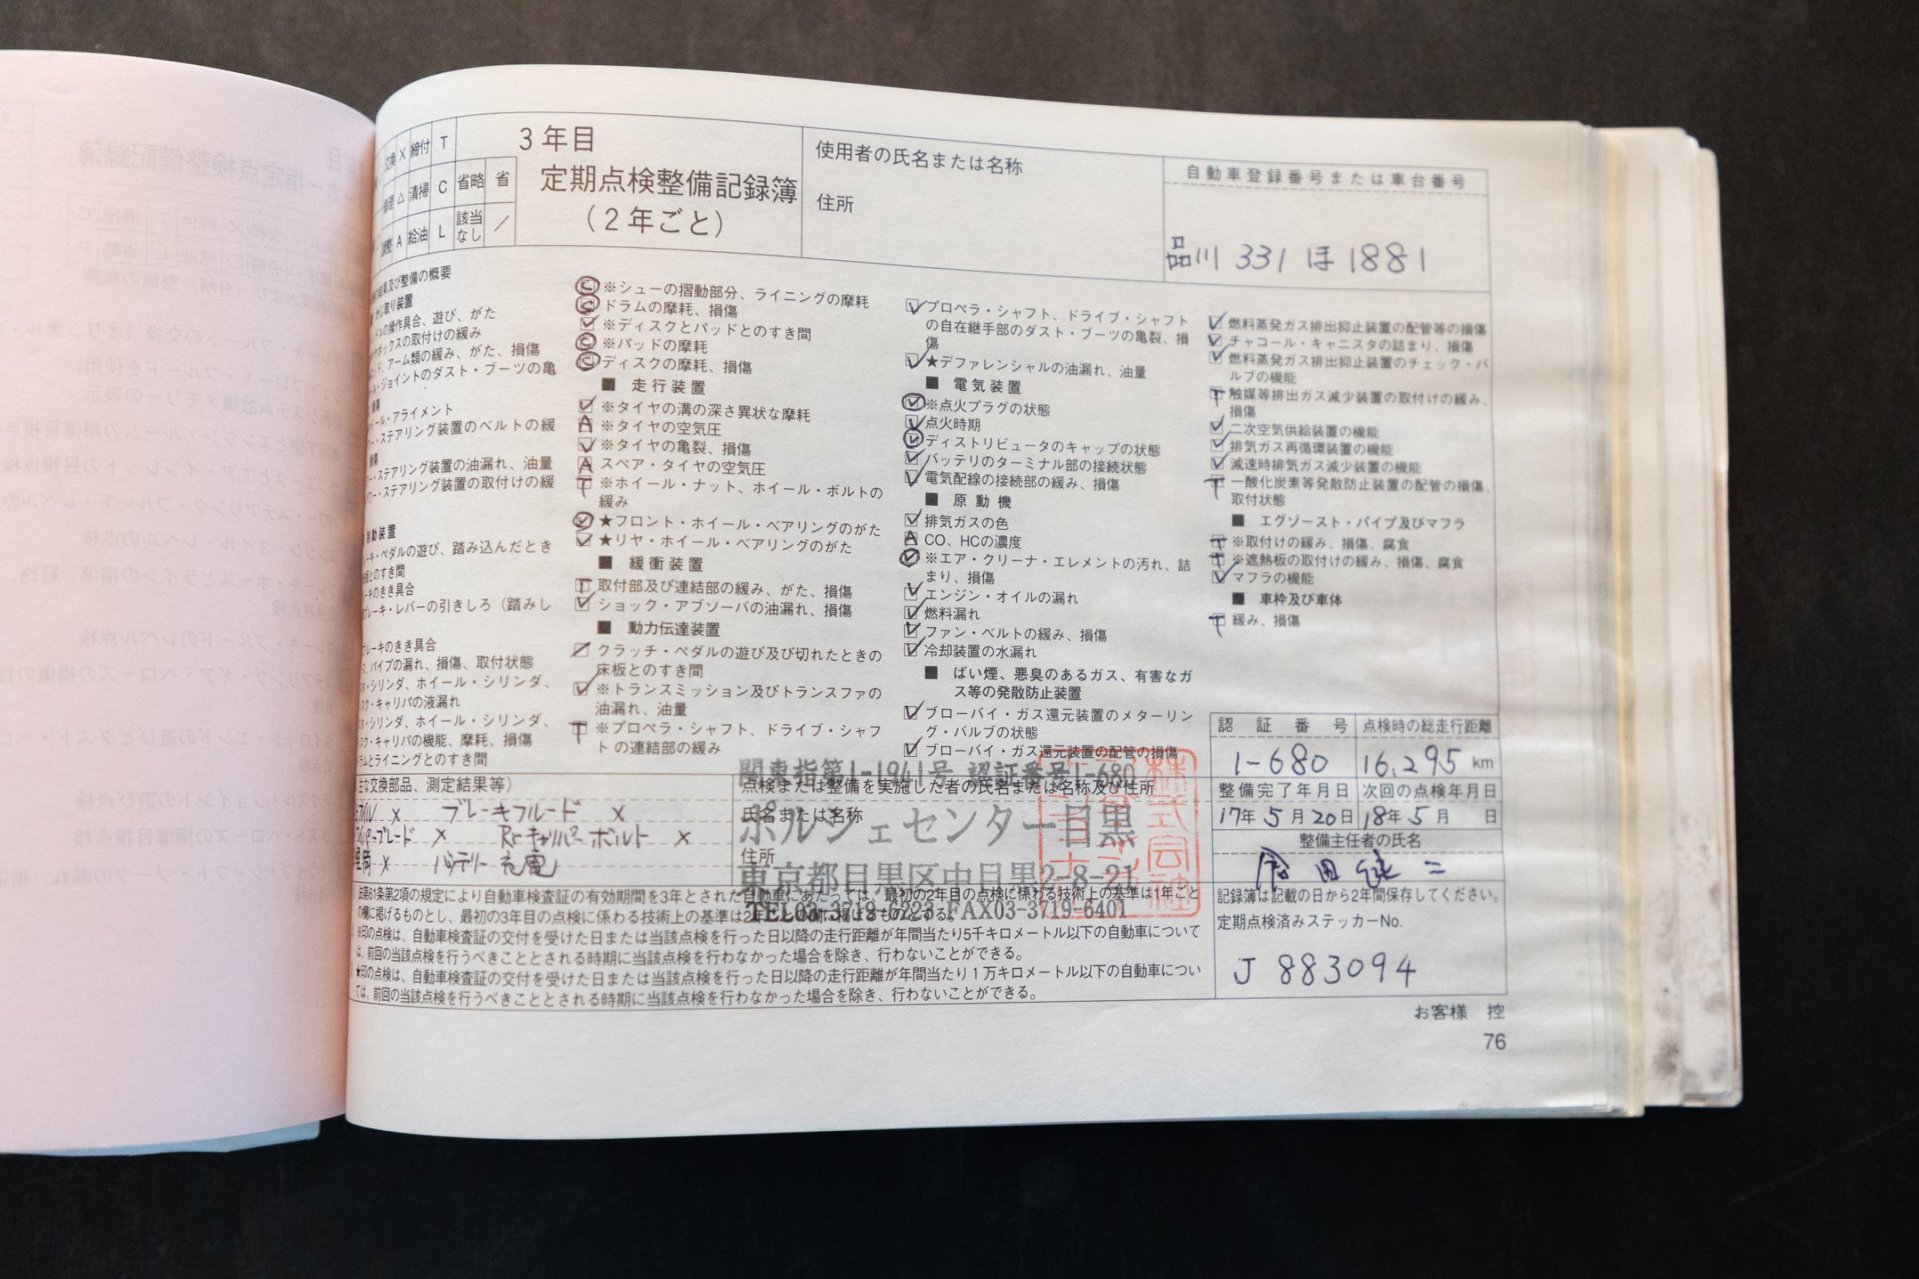 交換 × 締付 T
修理 △ 清掃 C 省略 省
調整 A 給油 L 該当なし ／
3年目
定期点検整備記録簿
(2年ごと)
使用者の氏名または名称
住所
自動車登録番号または車台番号
品川 331 ほ 1881
及び整備の概要
装置
の操作具合、遊び、がた
ボックスの取付けの緩み
ド、アーム類の緩み、がた、損傷
ル・ジョイントのダスト・ブーツの亀
損傷
ール・アライメント
ー・ステアリング装置のベルトの緩
損傷
ー・ステアリング装置の油漏れ、油量
ワー・ステアリング装置の取付けの緩
動装置
ーキ・ペダルの遊び、踏み込んだとき
板とのすき間
ーキのきき具合
ブレーキ・レバーの引きしろ（踏みし
ブレーキのきき具合
ス、パイプの漏れ、損傷、取付状態
タ・シリンダ、ホイール・シリンダ、
スク・キャリパの液漏れ
スタ・シリンダ、ホイール・シリンダ、
スク・キャリパの機能、摩耗、損傷
ラムとライニングとのすき間
※シューの摺動部分、ライニングの摩耗
ドラムの摩耗、損傷
※ディスクとパッドとのすき間
※パッドの摩耗
ディスクの摩耗、損傷
■ 走行装置
※タイヤの溝の深さ異状な摩耗
※タイヤの空気圧
※タイヤの亀裂、損傷
スペア・タイヤの空気圧
※ホイール・ナット、ホイール・ボルトの
緩み
★フロント・ホイール・ベアリングのがた
★リヤ・ホイール・ベアリングのがた
■ 緩衝装置
取付部及び連結部の緩み、がた、損傷
ショック・アブソーバの油漏れ、損傷
■ 動力伝達装置
クラッチ・ペダルの遊び及び切れたときの
床板とのすき間
※トランスミッション及びトランスファの
油漏れ、油量
※プロペラ・シャフト、ドライブ・シャフ
トの連結部の緩み
プロペラ・シャフト、ドライブ・シャフト
の自在継手部のダスト・ブーツの亀裂、損
傷
★デファレンシャルの油漏れ、油量
■ 電気装置
※点火プラグの状態
点火時期
ディストリビュータのキャップの状態
バッテリのターミナル部の接続状態
電気配線の接続部の緩み、損傷
■ 原動機
排気ガスの色
CO、HCの濃度
※エア・クリーナ・エレメントの汚れ、詰
まり、損傷
エンジン・オイルの漏れ
燃料漏れ
ファン・ベルトの緩み、損傷
冷却装置の水漏れ
■ ばい煙、悪臭のあるガス、有害なガ
ス等の発散防止装置
ブローバイ・ガス還元装置のメターリン
グ・バルブの状態
ブローバイ・ガス還元装置の配管の損傷
燃料蒸発ガス排出抑止装置の配管等の損傷
チャコール・キャニスタの詰まり、損傷
燃料蒸発ガス排出抑止装置のチェック・バ
ルブの機能
触媒等排出ガス減少装置の取付けの緩み、
損傷
二次空気供給装置の機能
排気ガス再循環装置の機能
減速時排気ガス減少装置の機能
一酸化炭素等発散防止装置の配管の損傷、
取付状態
■ エグゾースト・パイプ及びマフラ
※取付けの緩み、損傷、腐食
※遮熱板の取付けの緩み、損傷、腐食
マフラの機能
■ 車枠及び車体
緩み、損傷
認証番号 点検時の総走行距離
1-680 16,295 km
整備完了年月日 次回の点検年月日
17年 5月 20日 18年 5月 日
整備主任者の氏名
記録簿は記載の日から2年間保存してください。
定期点検済みステッカーNo.
J 883094
主な交換部品、測定結果等）
オイル × ブレーキフルード ×
ブレード × Rrキャリパーボルト ×
× バッテリー充電
関東指第1-1941号 認証番号1-680
点検または整備を実施した者の氏名または名称及び住所
氏名または名称
ポルシェセンター目黒
住所
東京都目黒区中目黒2-8-21
TEL03-3719-6223 FAX03-3719-6401
株式会社
法第61条第2項の規定により自動車検査証の有効期間を3年とされた自動車にあたっては、最初の2年目の点検に係わる技術上の基準は1年ごと
の欄に掲げるものとし、最初の3年目の点検に係わる技術上の基準は2年ごとの欄に掲げるものとする。
※印の点検は、自動車検査証の交付を受けた日または当該点検を行った日以降の走行距離が年間当たり5千キロメートル以下の自動車について
は、前回の当該点検を行うべきこととされる時期に当該点検を行わなかった場合を除き、行わないことができる。
★印の点検は、自動車検査証の交付を受けた日または当該点検を行った日以降の走行距離が年間当たり1万キロメートル以下の自動車につい
ては、前回の当該点検を行うべきこととされる時期に当該点検を行わなかった場合を除き、行わないことができる。
お客様 控
76